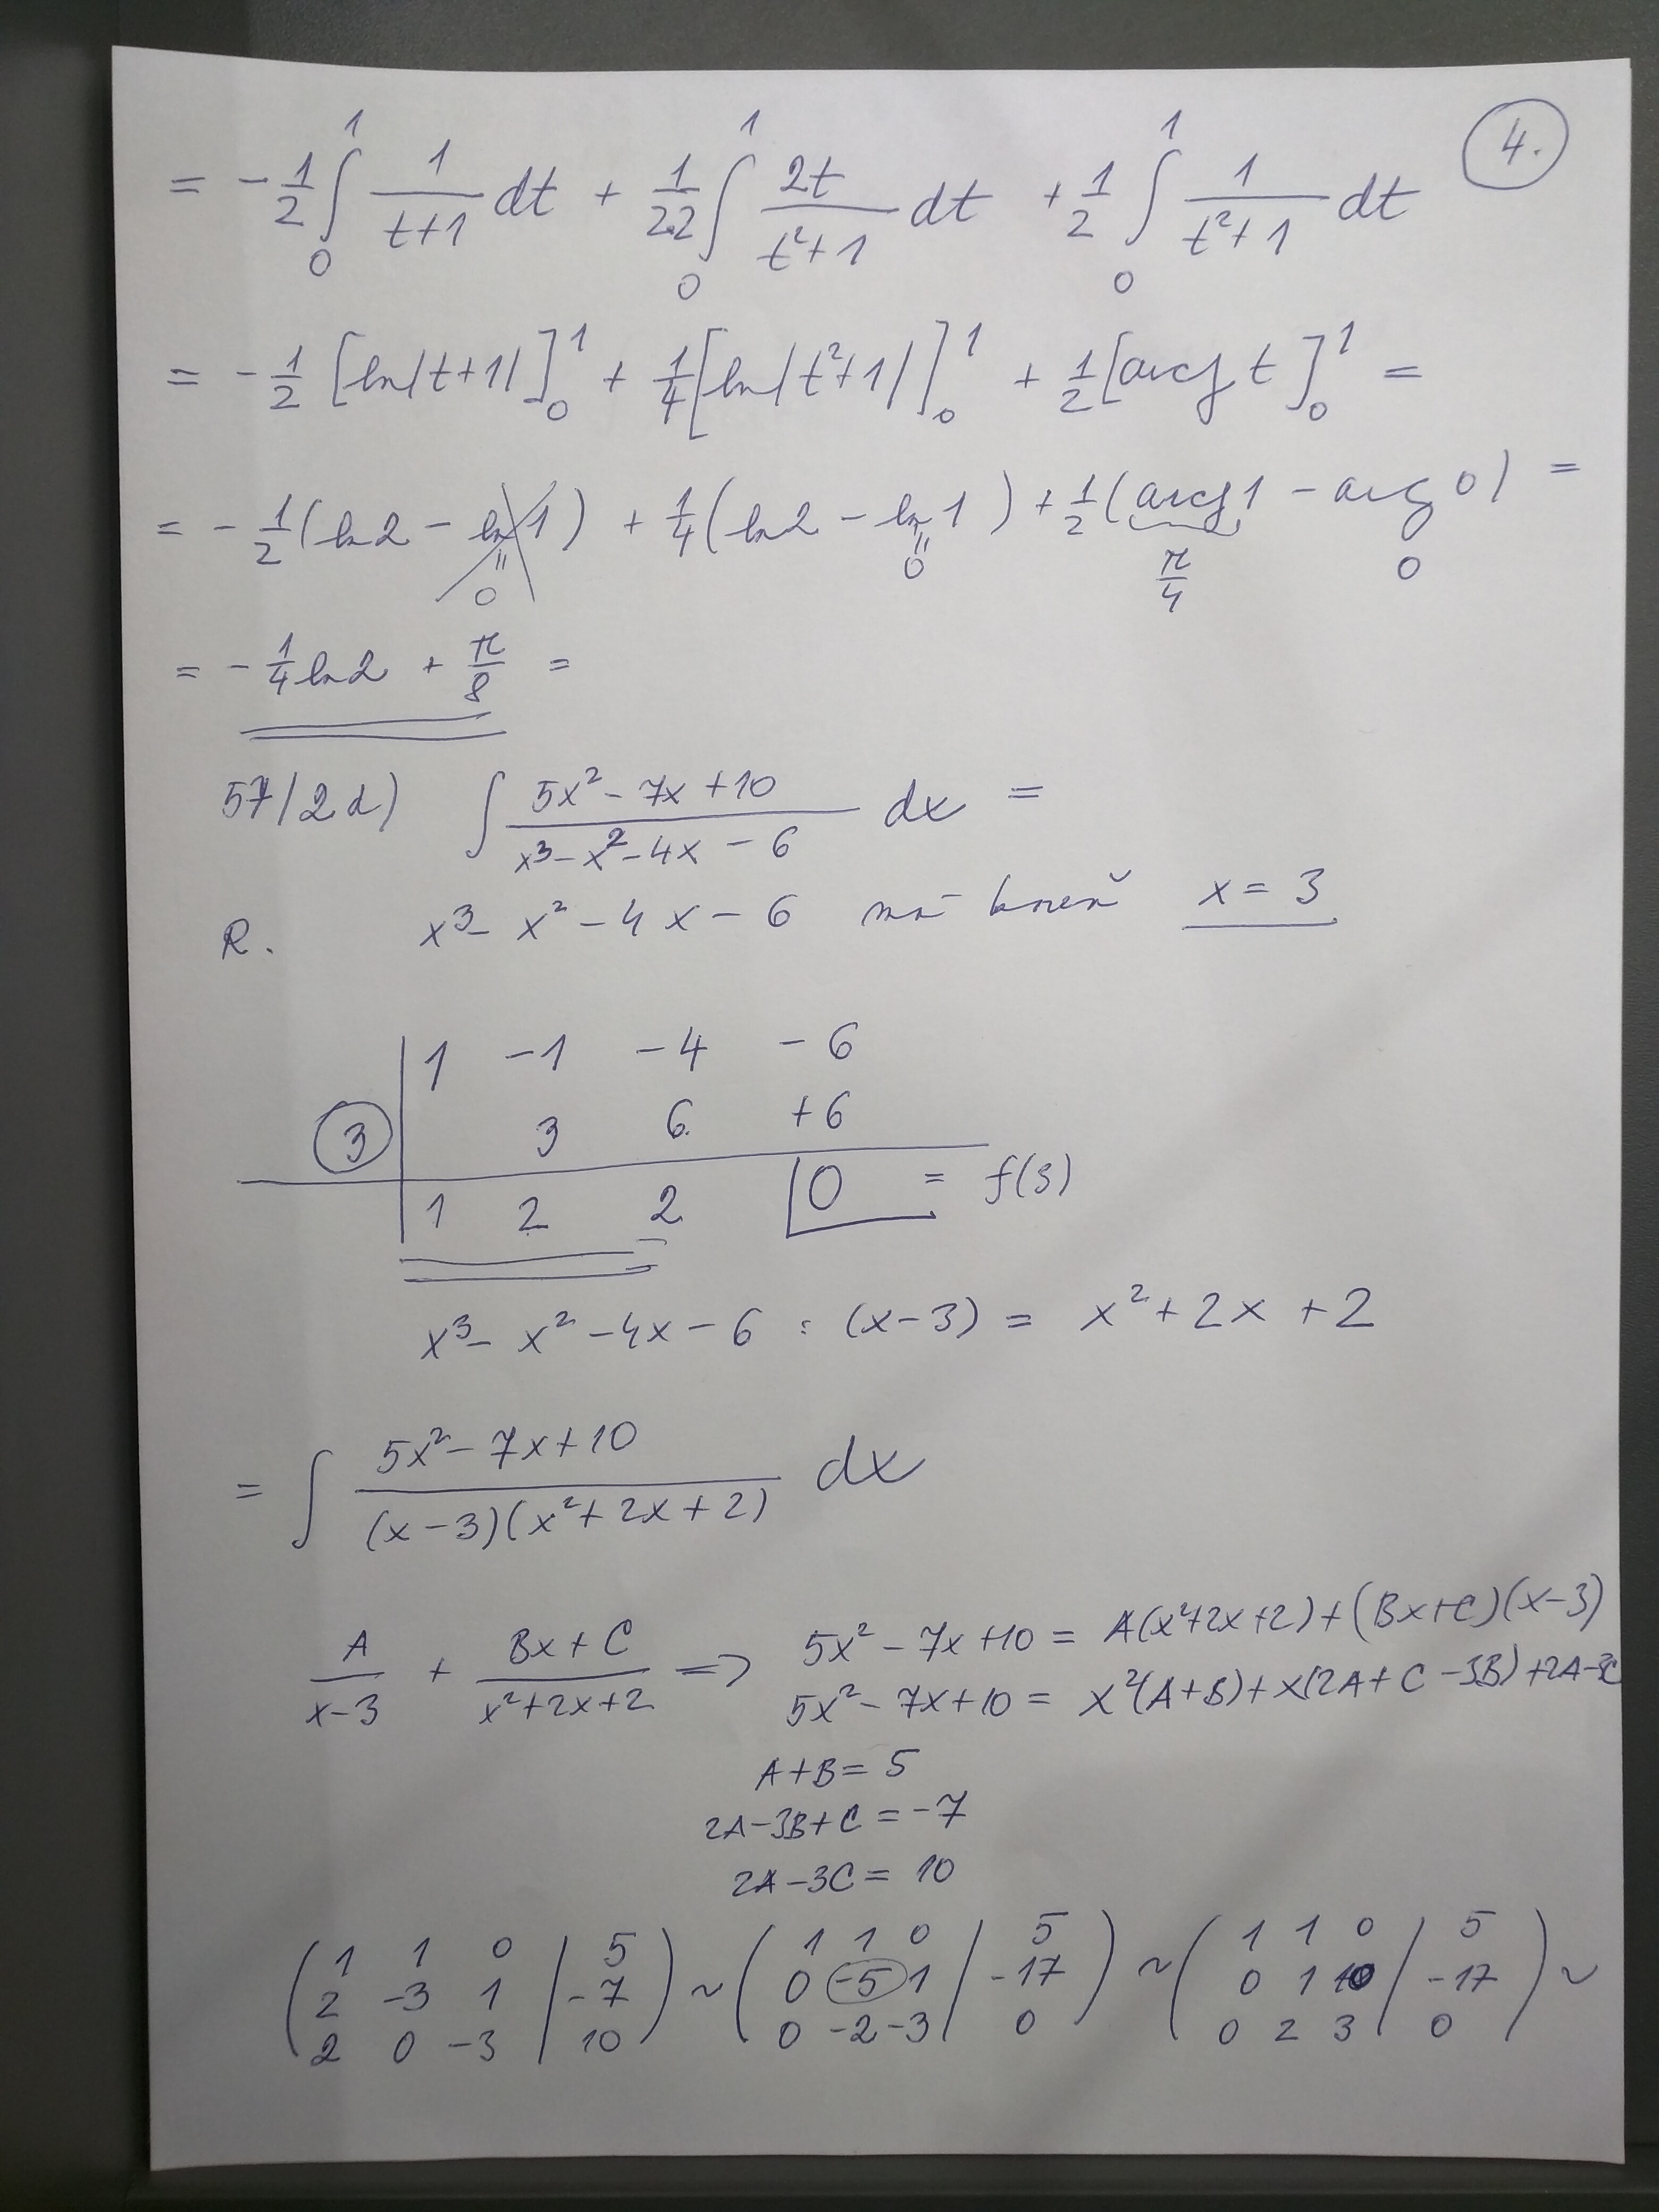 4.
= -1/2 ∫₀¹ 1/(t+1) dt + 1/(2.2) ∫₀¹ 2t/(t²+1) dt + 1/2 ∫₀¹ 1/(t²+1) dt
= -1/2 [ln|t+1|]₀¹ + 1/4 [ln|t²+1|]₀¹ + 1/2 [arctg t]₀¹ =
= -1/2 (ln2 - ln1) + 1/4 (ln2 - ln1) + 1/2 (arctg 1 - arctg 0) =
" 0 " 0 π/4 0
= -1/4 ln2 + π/8 =
57/2d) ∫ (5x² - 7x + 10)/(x³ - x² - 4x - 6) dx =
R. x³ - x² - 4x - 6 má kořen x = 3
1 -1 -4 -6
3 3 6 +6
1 2 2 0 = f(3)
x³ - x² - 4x - 6 : (x-3) = x² + 2x + 2
= ∫ (5x² - 7x + 10)/((x-3)(x² + 2x + 2)) dx
A/(x-3) + (Bx+C)/(x²+2x+2) => 5x² - 7x + 10 = A(x²+2x+2) + (Bx+C)(x-3)
5x² - 7x + 10 = x²(A+B) + x(2A+C-3B) + 2A-3C
A+B = 5
2A-3B+C = -7
2A-3C = 10
(1 1 0 | 5) ~ (1 1 0 | 5) ~ (1 1 0 | 5) ~
(2 -3 1 | -7) (0 -5 1 | -17) (0 1 10 | -17)
(2 0 -3 | 10) (0 -2 -3 | 0) (0 2 3 | 0)